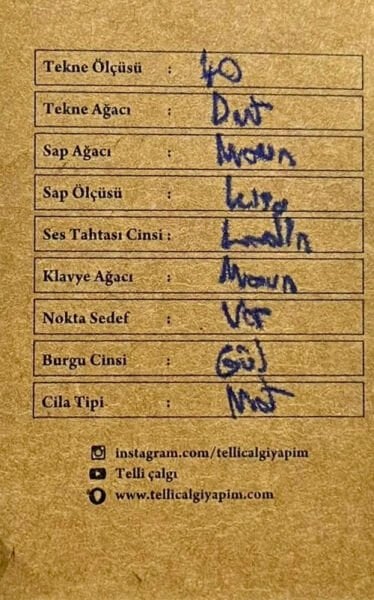 Tekne Ölçüsü : 40
Tekne Ağacı : Dut
Sap Ağacı : Maun
Sap Ölçüsü : Kısa
Ses Tahtası Cinsi : Ladin
Klavye Ağacı : Maun
Nokta Sedef : Var
Burgu Cinsi : Gül
Cila Tipi : Mat
instagram.com/tellicalgiyapim
Telli çalgı
www.tellicalgiyapim.com